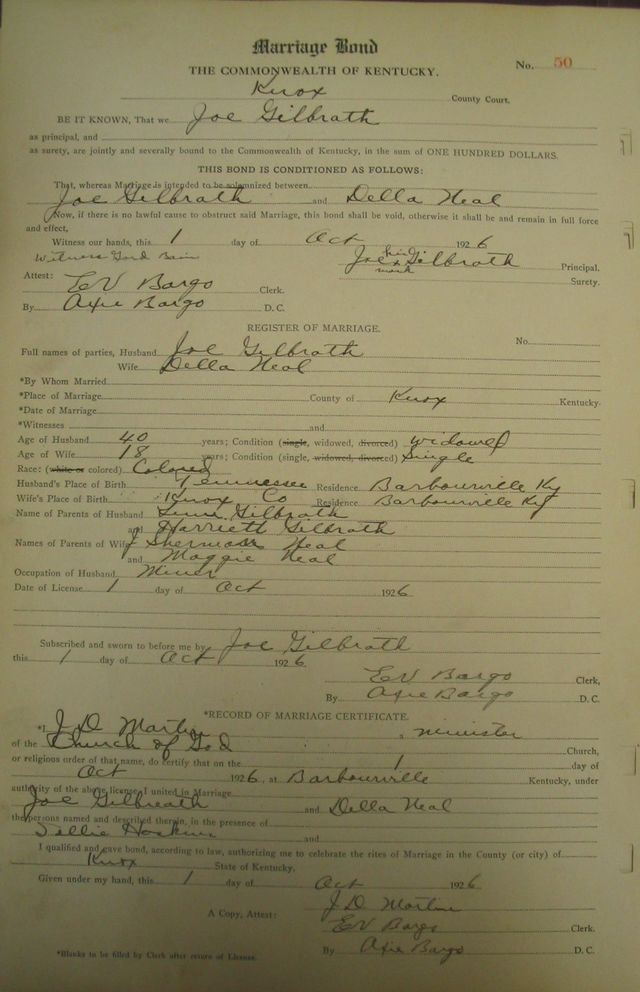 Marriage Bond
No. 50
THE COMMONWEALTH OF KENTUCKY.
Knox County Court.
BE IT KNOWN, That we Joe Gilbrath
as principal, and
as surety, are jointly and severally bound to the Commonwealth of Kentucky, in the sum of ONE HUNDRED DOLLARS.
THIS BOND IS CONDITIONED AS FOLLOWS:
That, whereas Marriage is intended to be solemnized between
Joe Gilbrath and Della Neal
Now, if there is no lawful cause to obstruct said Marriage, this bond shall be void, otherwise it shall be and remain in full force
and effect,
Witness our hands, this 1 day of Oct 1926
Witness Gord Bain
Joe his x mark Gilbrath Principal.
Surety.
Attest: EV Bargo Clerk.
By Axie Bargo D. C.
REGISTER OF MARRIAGE.
No.
Full names of parties, Husband Joe Gilbrath
Wife Della Neal
*By Whom Married
*Place of Marriage County of Knox Kentucky.
*Date of Marriage
*Witnesses and
Age of Husband 40 years; Condition (single, widowed, divorced) widowed
Age of Wife 18 years; Condition (single, widowed, divorced) Single
Race: (white or colored) Colored
Husband's Place of Birth Tennessee Residence Barbourville Ky
Wife's Place of Birth Knox Co Residence Barbourville Ky
Name of Parents of Husband Gilbrath
and Harriett Gilbrath
Names of Parents of Wife J Sherman Neal
and Maggie Neal
Occupation of Husband Miner
Date of License 1 day of Oct 1926
Subscribed and sworn to before me by Joe Gilbrath
this 1 day of Oct 1926
EV Bargo Clerk,
By Axie Bargo D. C.
*RECORD OF MARRIAGE CERTIFICATE.
*I J D Martin, minister
of the Church of God Church,
or religious order of that name, do certify that on the 1 day of
Oct 1926, at Barbourville Kentucky, under
authority of the above license, I united in Marriage
Joe Gilbreath and Della Neal
the persons named and described therein, in the presence of
Hoskins and
I qualified and gave bond, according to law, authorizing me to celebrate the rites of Marriage in the County (or city) of
Knox State of Kentucky.
Given under my hand, this 1 day of Oct 1926
J D Martin
A Copy, Attest: EV Bargo Clerk.
By Axie Bargo D. C.
*Blanks to be filled by Clerk after return of License.